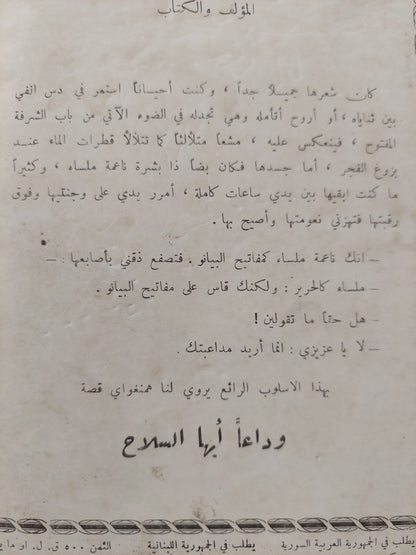 المؤلف والكتاب
كان شعرها جميلاً جداً ، وكنت أحياناً استمر في دس انفي
بين ثناياه ، أو أروح أتأمله وهي تجدله في الضوء الآتي من باب الشرفة
المفتوح ، فينعكس عليه ، مشعاً متلألئاً كما تتلألأ قطرات الماء عند
بزوغ الفجر ، أما جسدها فكان بضاً ذا بشرة ناعمة ملساء ، وكثيراً
ما كنت ابقيها بين يدي ساعات كاملة ، أمرر يدي على وجنتيها وفوق
رقبتها فتهزني نعومتها وأصيح بها .
– انك ناعمة ملساء كمفاتيح البيانو . فتصفع ذقني بأصابعها : –
– ملساء كالحرير : ولكنك قاس على مفاتيح البيانو .
– هل حتماً ما تقولين !
– لا يا عزيزي : انما أريد مداعبتك .
بهذا الاسلوب الرائع يروي لنا همنغواي قصة
وداعاً أيها السلاح
يطلب في الجمهورية العربية السورية يطلب في الجمهورية اللبنانية الثمن ٥٠٠ ق . ل . او ما